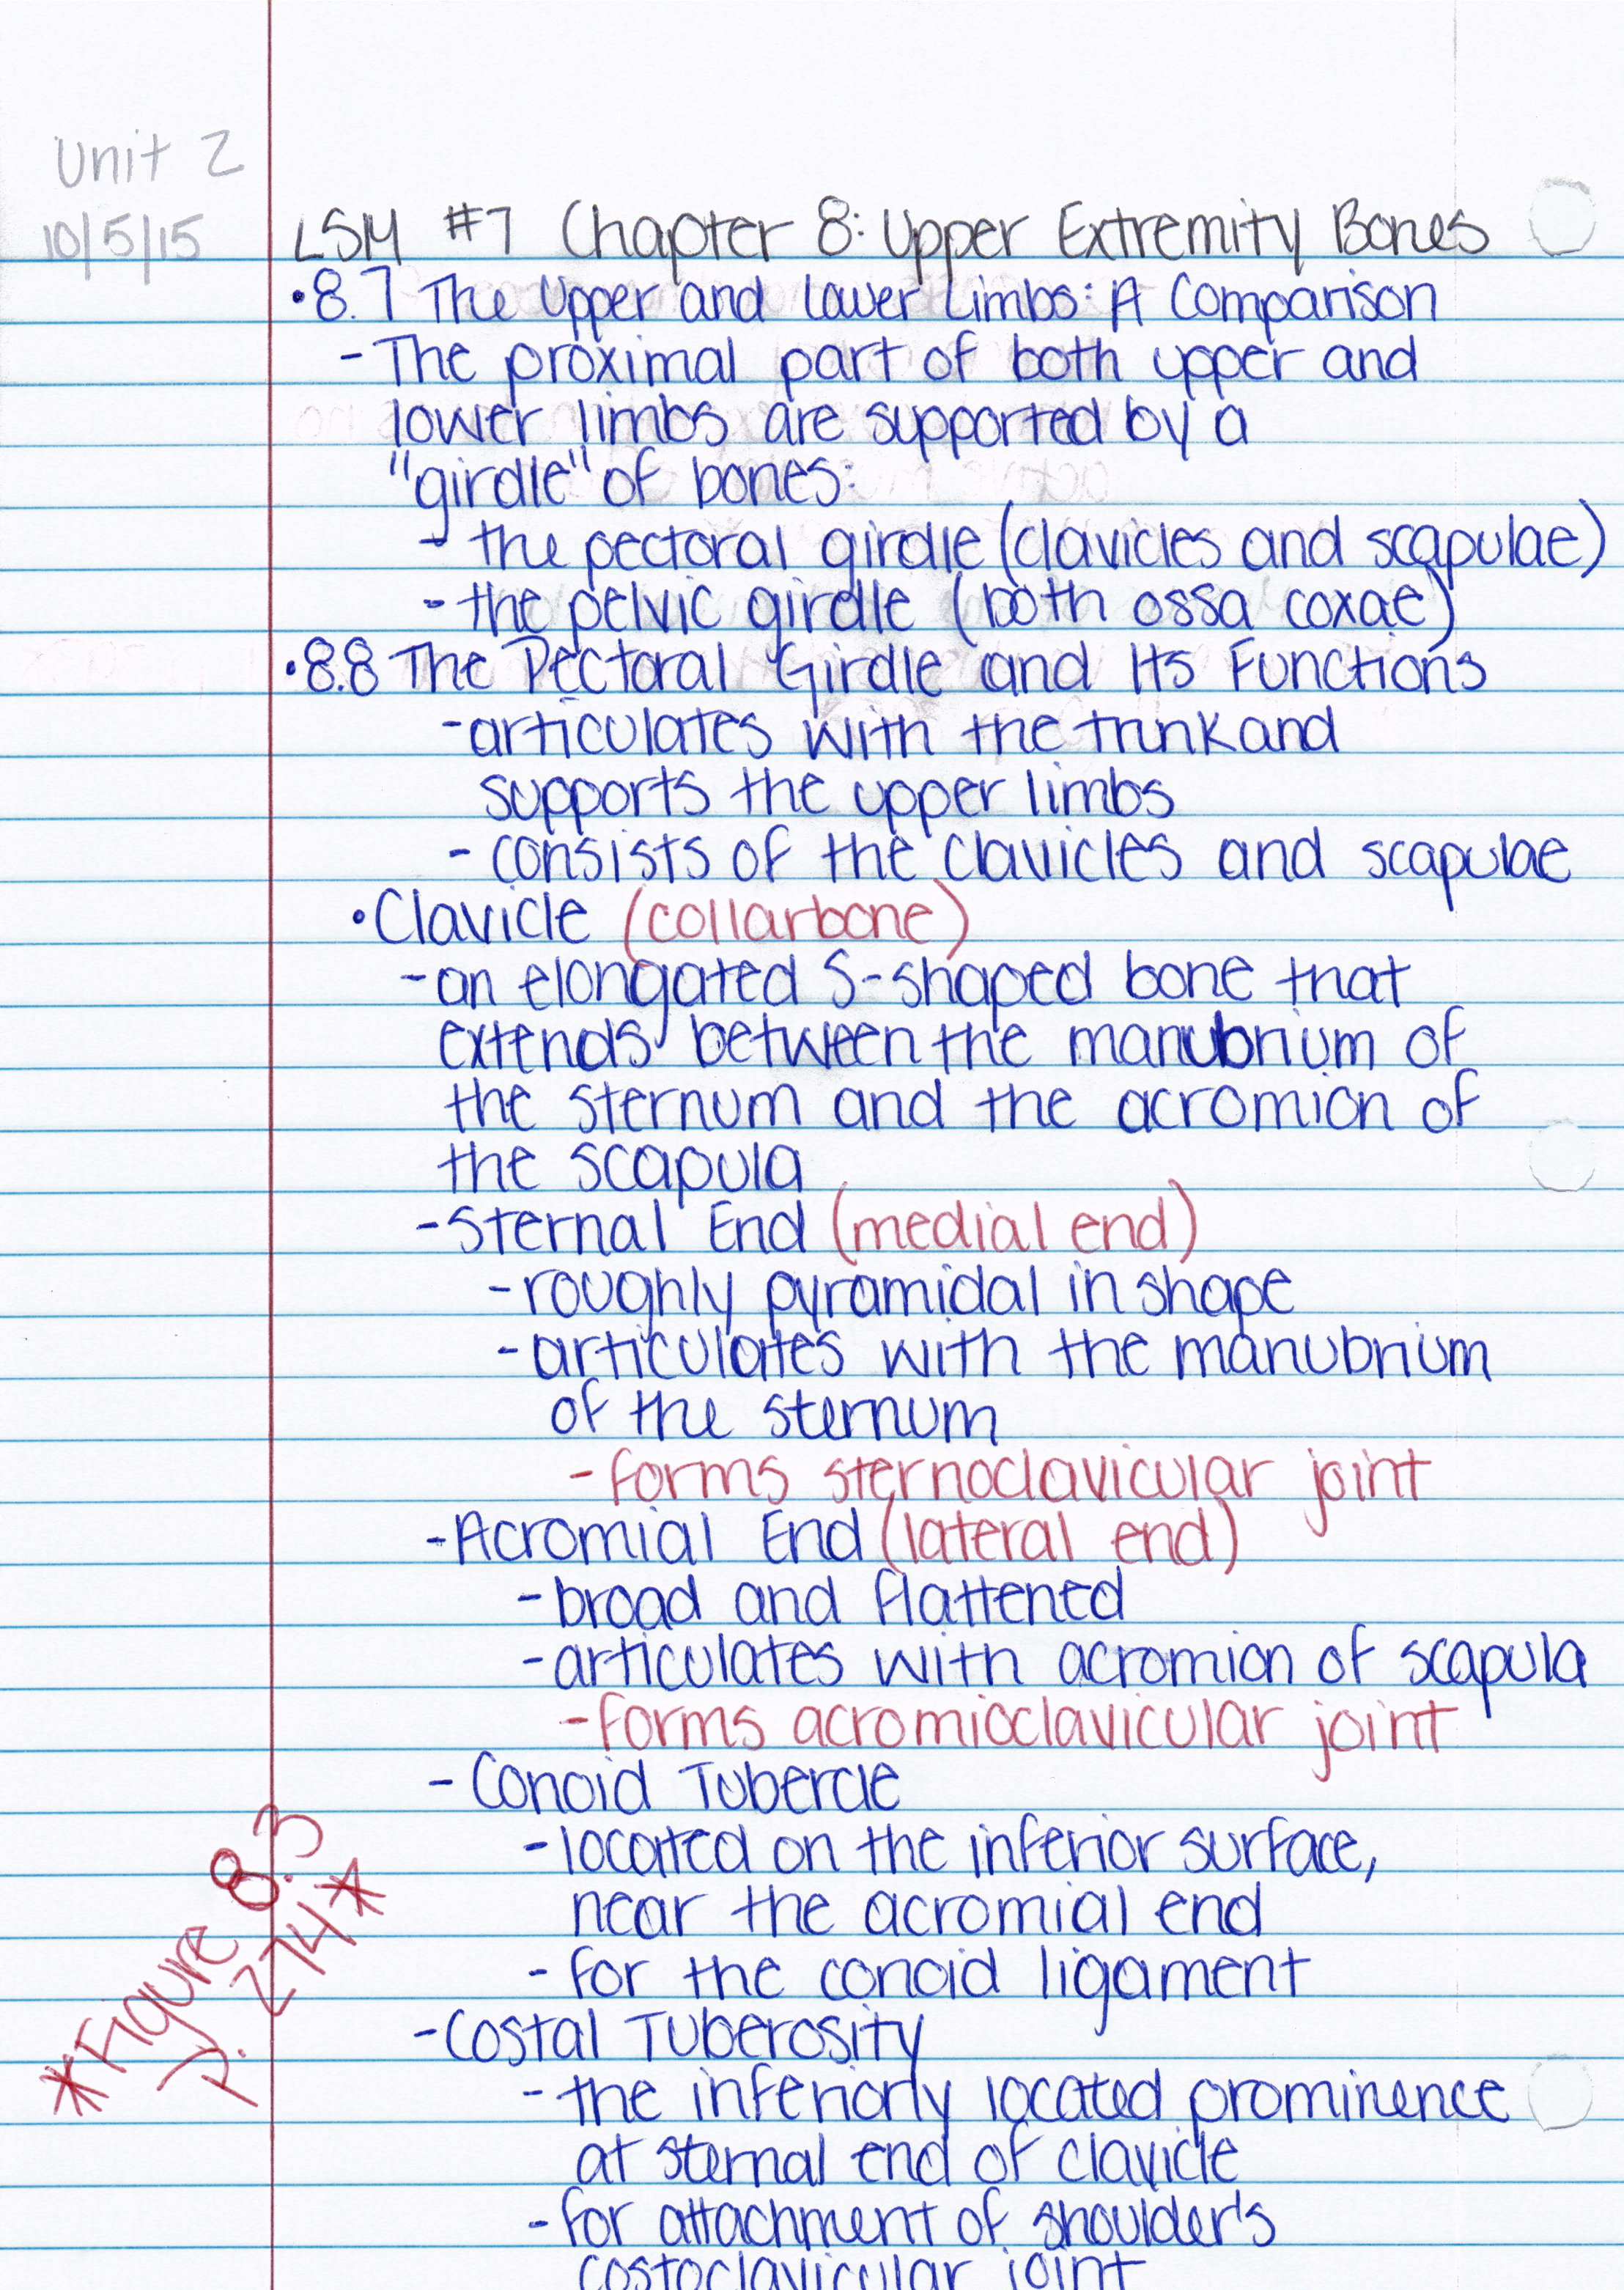 Unit 2
10/5/15
LSM #7 Chapter 8: Upper Extremity Bones
•8.7 The Upper and Lower Limbs: A Comparison
- The proximal part of both upper and
lower limbs are supported by a
"girdle" of bones:
- the pectoral girdle (clavicles and scapulae)
- the pelvic girdle (both ossa coxae)
•8.8 The Pectoral Girdle and Its Functions
- articulates with the trunk and
supports the upper limbs
- consists of the clavicles and scapulae
•Clavicle (collarbone)
- an elongated S-shaped bone that
extends between the manubrium of
the sternum and the acromion of
the scapula
- Sternal End (medial end)
- roughly pyramidal in shape
- articulates with the manubrium
of the sternum
- forms sternoclavicular joint
- Acromial End (lateral end)
- broad and flattened
- articulates with acromion of scapula
- forms acromioclavicular joint
- Conoid Tubercle
- located on the inferior surface,
near the acromial end
- for the conoid ligament
*Figure 8.3
p. 274*
- Costal Tuberosity
- the inferiorly located prominence
at sternal end of clavicle
- for attachment of shoulder's
costoclavicular joint